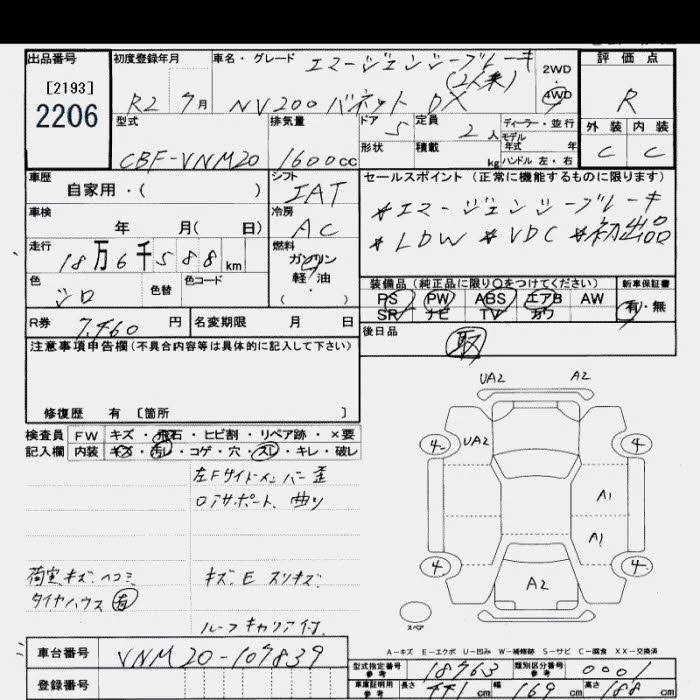 出品番号
[2193]
2206
初度登録年月
R2 7月
車名・グレード
エマージェンシーブレーキ
(2人乗)
NV200 バネット DX
2WD
4WD
評価点
R
外装 内装
C C
型式
CBF-VNM20
排気量
1600cc
ドア 5
形状
定員 2人
積載 kg
ディーラー・並行
モデル年式 年
ハンドル 左・右
車歴
自家用・( )
シフト
IAT
セールスポイント (正常に機能するものに限ります)
*エマージェンシーブレーキ
*LDW *VDC *初出品
車検
年 月( 日)
冷房
AC
走行
18万6千588km
燃料
ガソリン
軽・油
・( )
色
シロ
色替
色コード
装備品 (純正品に限り○をつけてください)
PS PW ABS エアB AW
SR ナビ TV カワ
新車保証書
有・無
R券 7,460円
名変期限 月 日
後日品
取
注意事項申告欄 (不具合内容等は具体的に記入して下さい)
修復歴 有 [箇所 ]
検査員記入欄
FW キズ・飛石・ヒビ割・リペア跡・×要
内装 キズ・汚レ・コゲ・穴・スレ・キレ・破レ
左Fサイドメンバー歪
ロアサポート 曲り
荷室キズ.ヘコミ
キズ.E スリキズ
タイヤハウス 有
ルーフキャリア付
UA2 A2
4 UA2 4
A1
A1
4 4
A2
スペア
A-キズ E-エクボ U-凹み W-補修跡 S-サビ C-腐食 XX-交換済
車台番号 VNM20-107839
登録番号
型式指定番号参考 18763
類別区分番号参考 0001
車庫証明用参考 長さ 441cm 幅 169cm 高さ 188cm